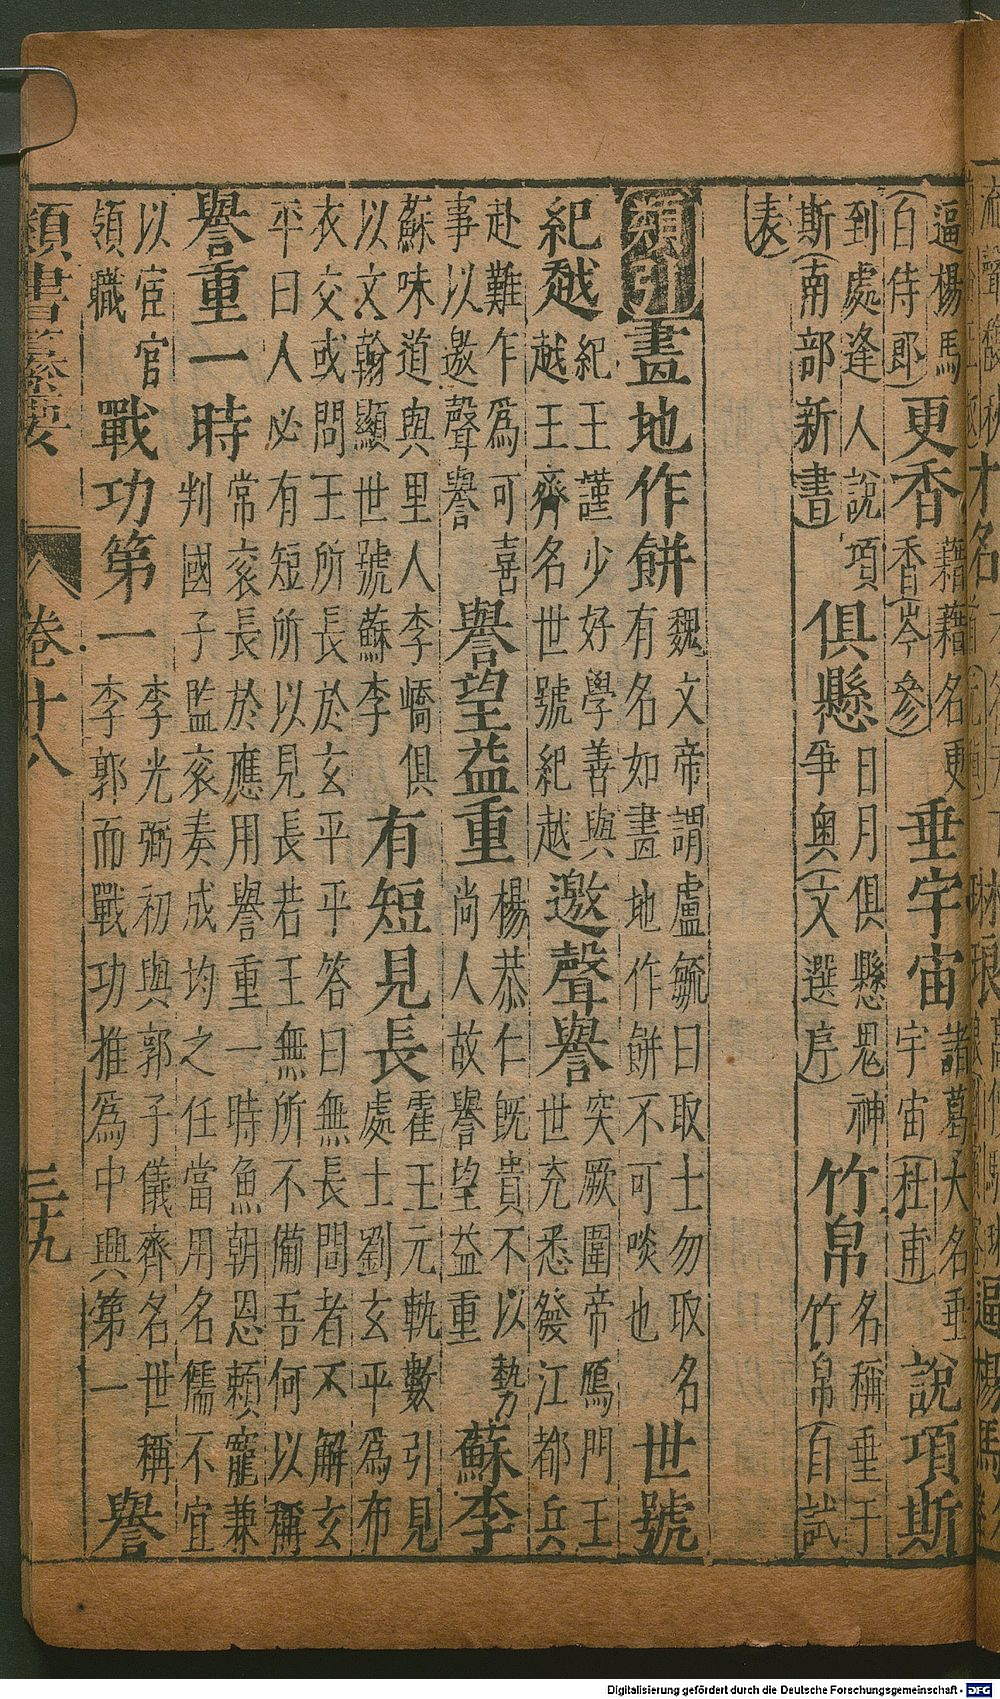 逼楊馬百侍郎)更香藉藉名更香(岑參)垂宇宙諸葛大名垂宇宙(杜甫)說項斯
到處逢人說項斯(南部新書)俱懸日月俱懸鬼神爭奧(文選序)竹帛名稱垂于竹帛(自試
表)
類引畫地作餅魏文帝謂盧毓曰取士勿取名有名如畫地作餅不可啖也世號
紀越紀王謹少好學善與越王齊名世號紀越邀聲譽突厥圍帝鴈門王世充悉發江都兵
赴難乍爲可喜事以邀聲譽譽望益重楊恭仁旣貴不以勢尚人故譽望益重蘇李
蘇味道與里人李嶠俱以文翰顯世號蘇李有短見長霍王元軌數引見處士劉玄平爲布
衣交或問王所長於玄平平答曰無長問者不解玄平曰人必有短所以見長若王無所不備吾何以稱
譽重一時常袞長於應用譽重一時魚朝恩賴寵兼判國子監袞奏成均之任當用名儒不宜
以宦官領職戰功第一李光弼初與郭子儀齊名世稱李郭而戰功推爲中興第一譽
類書纂要 卷十八 三十九
Digitalisierung gefördert durch die Deutsche Forschungsgemeinschaft - DFG